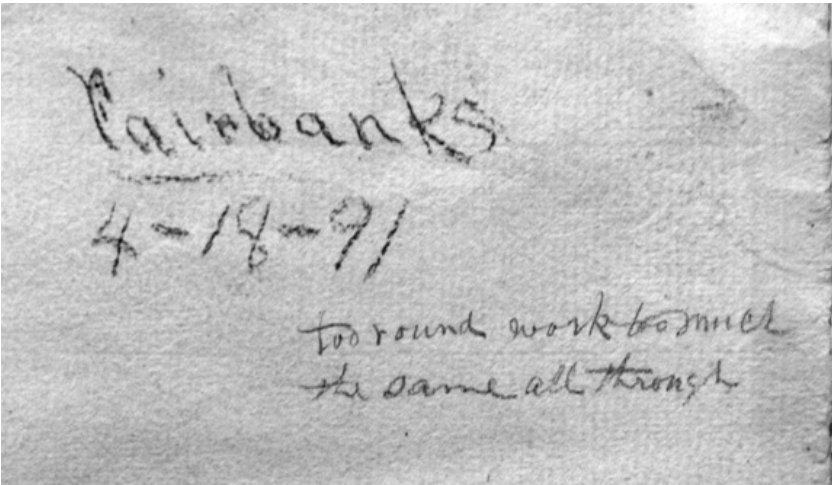 Fairbanks
4-18-91
too round work too much
the same all through